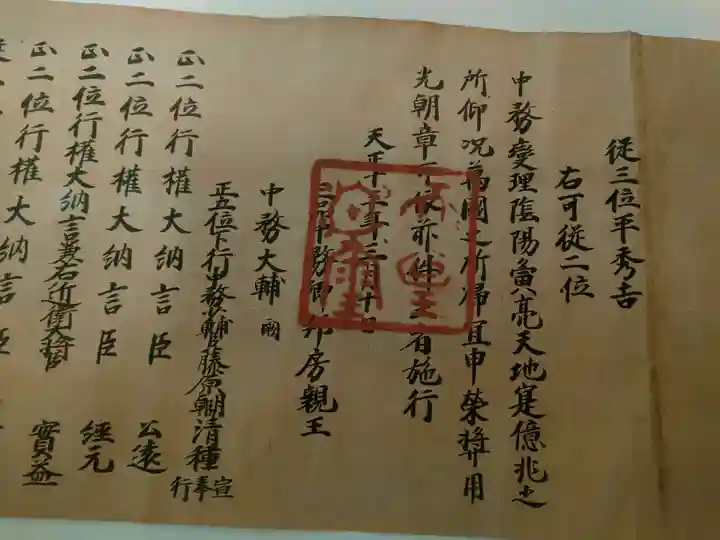 從三位平秀吉
右可從二位
中務變理陰陽寅亮天地寔億兆之
所仰況萬國之所歸宜申榮奨用
光朝章可依前件主者施行
天正十三年三月十日
二品中務卿邦房親王
中務大輔 闕
正五位下行中務少輔藤原朝臣清種宣奉行
正二位行權大納言臣 公遠
正二位行權大納言臣 經元
正二位行權大納言兼右近衛大將臣 實益
正二位行權大納言臣